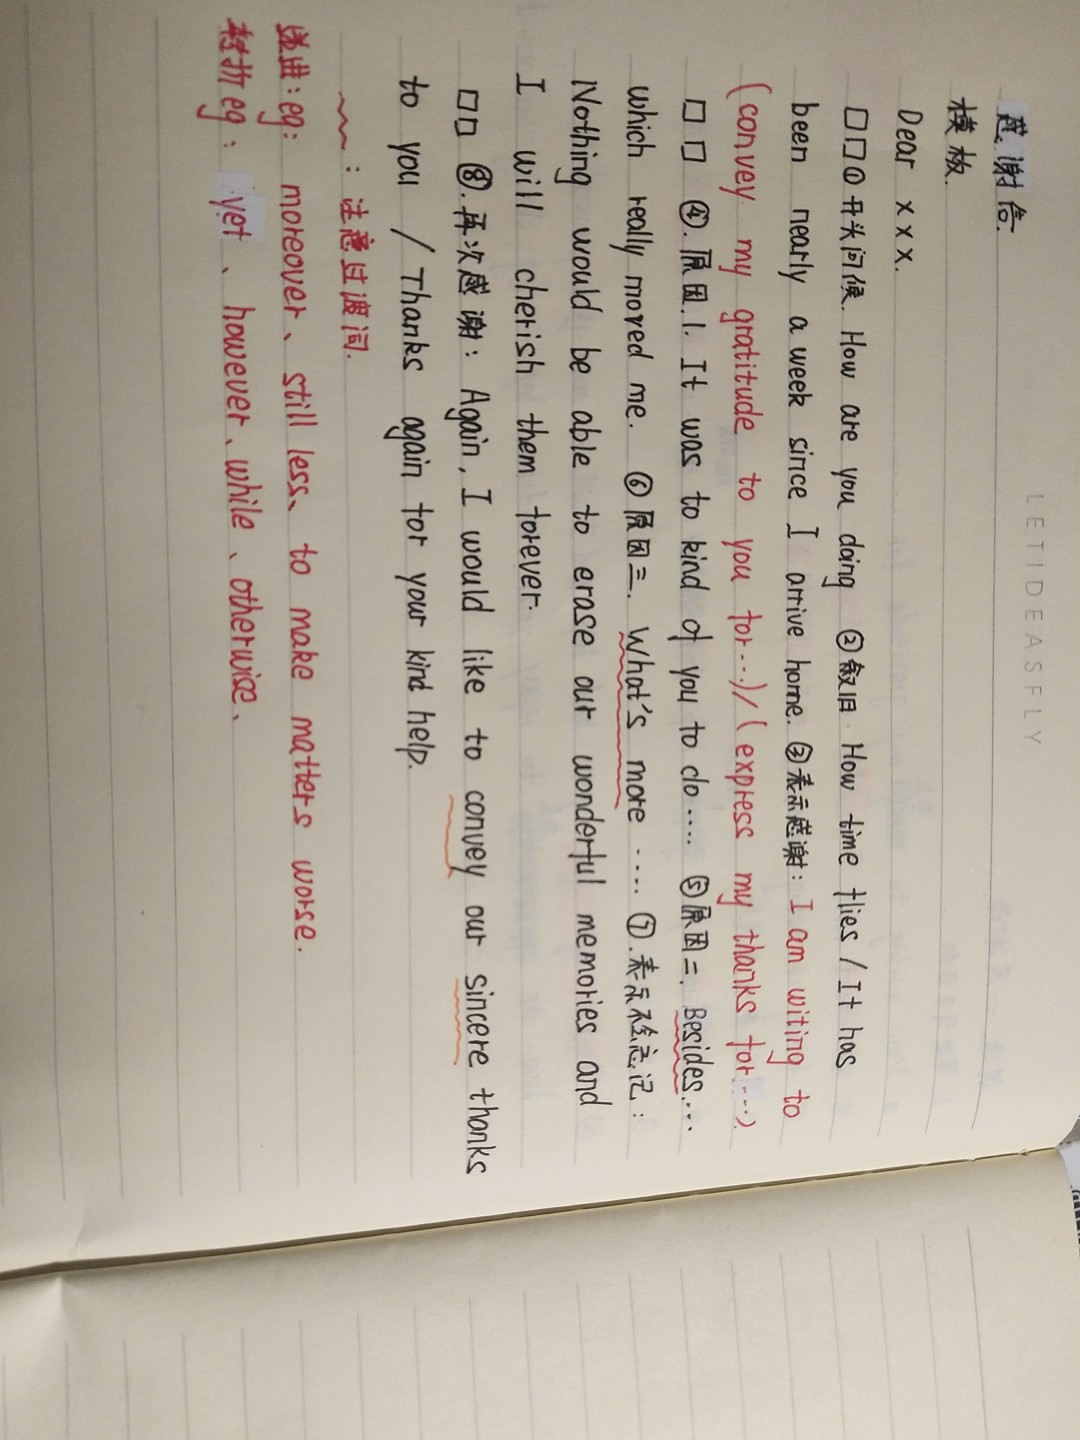 LETIDEASFLY
感谢信.
模板.
Dear xxx.
□□①开头问候. How are you doing ②叙旧. How time flies / It has
been nearly a week since I arrive home. ③表示感谢: I am witing to
(convey my gratitude to you for...)/(express my thanks for...)
□□ ④.原因.1. It was to kind of you to do .... ⑤原因二. Besides...
which really moved me. ⑥原因三. What's more .... ⑦.表示不会忘记:
Nothing would be able to erase our wonderful memories and
I will cherish them forever.
□□ ⑧.再次感谢: Again, I would like to convey our sincere thanks
to you / Thanks again for your kind help.
~~: 注意过渡词.
递进: eg: moreover、still less、to make matters worse.
转折eg: yet、however、while、otherwise、